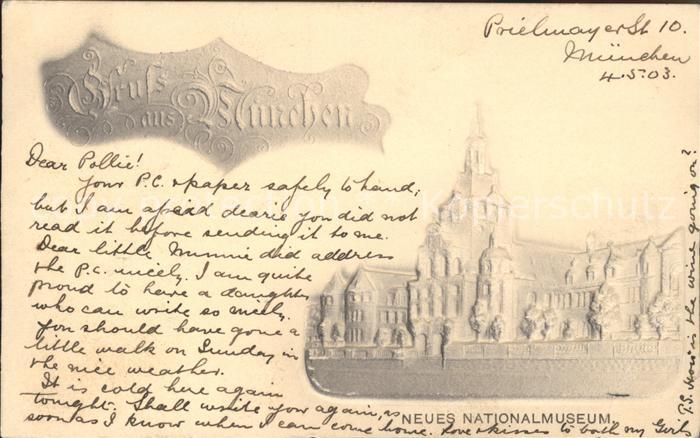 Prielmayer St 10.
München
4.5.03.
Gruß
aus München
Dear Pollie!
Your P.C. & paper safely to hand;
but I am afraid dearie you did not
read it before sending it to me.
Dear little Minnie did address
the P.C. nicely. I am quite
proud to have a daughter
who can write so nicely.
You should have gone a
little walk on Sunday in
the nice weather.
It is cold here again
tonight. Shall write you again, as
soon as I know when I can come home. Love & kisses to both my Girls
NEUES NATIONALMUSEUM.
P.S. How is the wine going on?
Kopierschutz